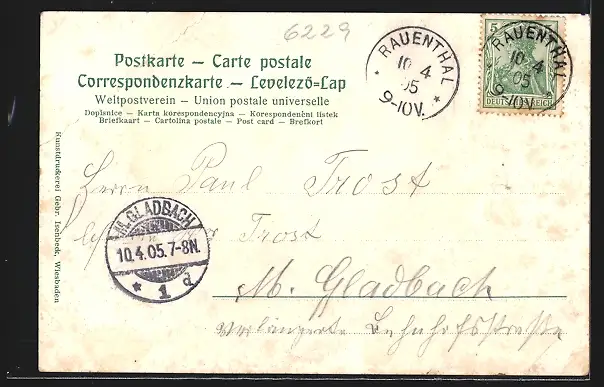 6229
Postkarte – Carte postale
Correspondenzkarte – Levelező-Lap
Weltpostverein – Union postale universelle
Dopisnice – Karta korespondencyjna – Korespondenčni listek
Briefkaart – Cartolina postale – Post card – Brefkort
RAUENTHAL
10 4
05
9-10V.
5
5
DEUTSCHES REICH
RAUENTHAL
10 4
05
9-10V.
Kunstdruckerei Gebr. Isenbeck, Wiesbaden
Herrn Paul Trost
Trost
M.GLADBACH
10.4.05.7-8N.
* 1 d
M. Gladbach
verlängerte Bahnhofsstraße